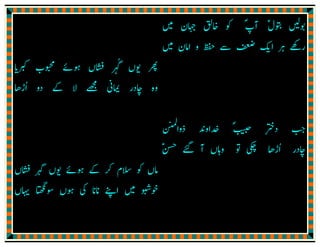 بولیں بتولؑ آپؐ کو خالق جہان میں
رکھے ہر ایک ضعف سے حفظ و امان میں
پھر یوں گہر فشاں ہوئے محبوب کبریا
وہ چادر یمانی مجھے لا کے دو اڑھا
جب دختر حبیبؐ خداوند ذوالمنن
چادر اڑھا چکی تو وہاں آ گئے حسنؑ
ماں کو سلام کر کے ہوئے یوں گہر فشاں
خوشبو میں اپنے نانا کی ہوں سونگھتا یہاں